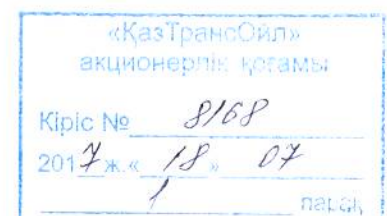 «ҚазТрансОйл»
акционерлік қоғамы
Кіріс № 8168
2017 ж.« 18 » 07
1 парақ